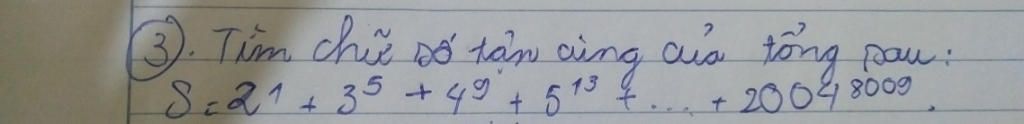 3. Tìm chữ số tận cùng của tổng sau:
S = 2¹ + 3⁵ + 4⁹ + 5¹³ + ... + 2004⁸⁰⁰⁹.